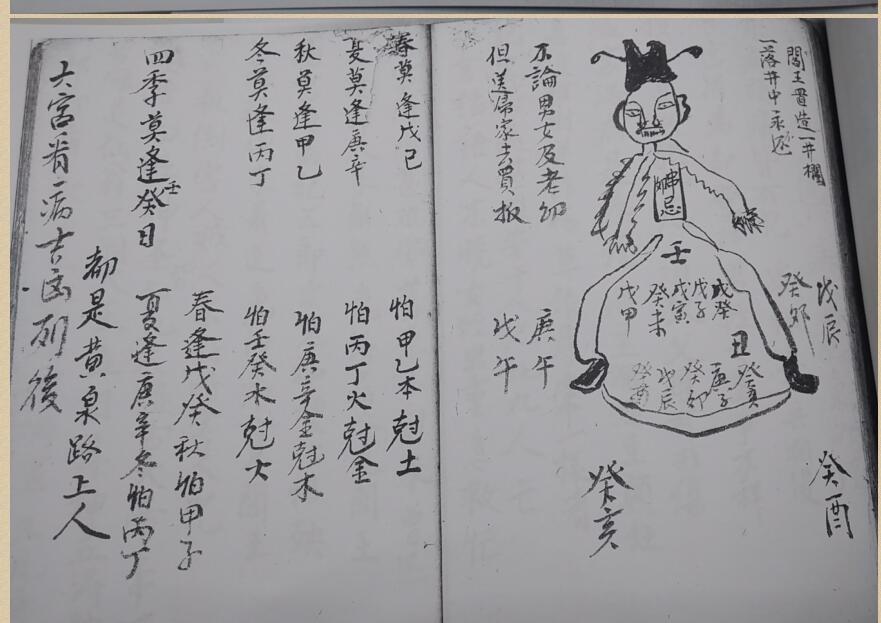 閻王置造一井欄
一落井中永
戊辰
癸卯
癸酉
弗忌
壬
戊癸
戊子
戊寅
癸未
戊甲
丑
癸卯
戊辰
癸酉
癸亥
不論男女及老幼
但送歸家去買板
庚午
戊午
春莫逢戊己
怕甲乙木尅土
夏莫逢庚辛
怕丙丁火尅金
秋莫逢甲乙
怕庚辛金尅木
冬莫逢丙丁
怕壬癸水尅火
四季莫逢壬癸日
春逢戊癸秋怕甲子
夏逢庚辛冬怕丙丁
都是黄泉路上人
六宮看病吉凶列後